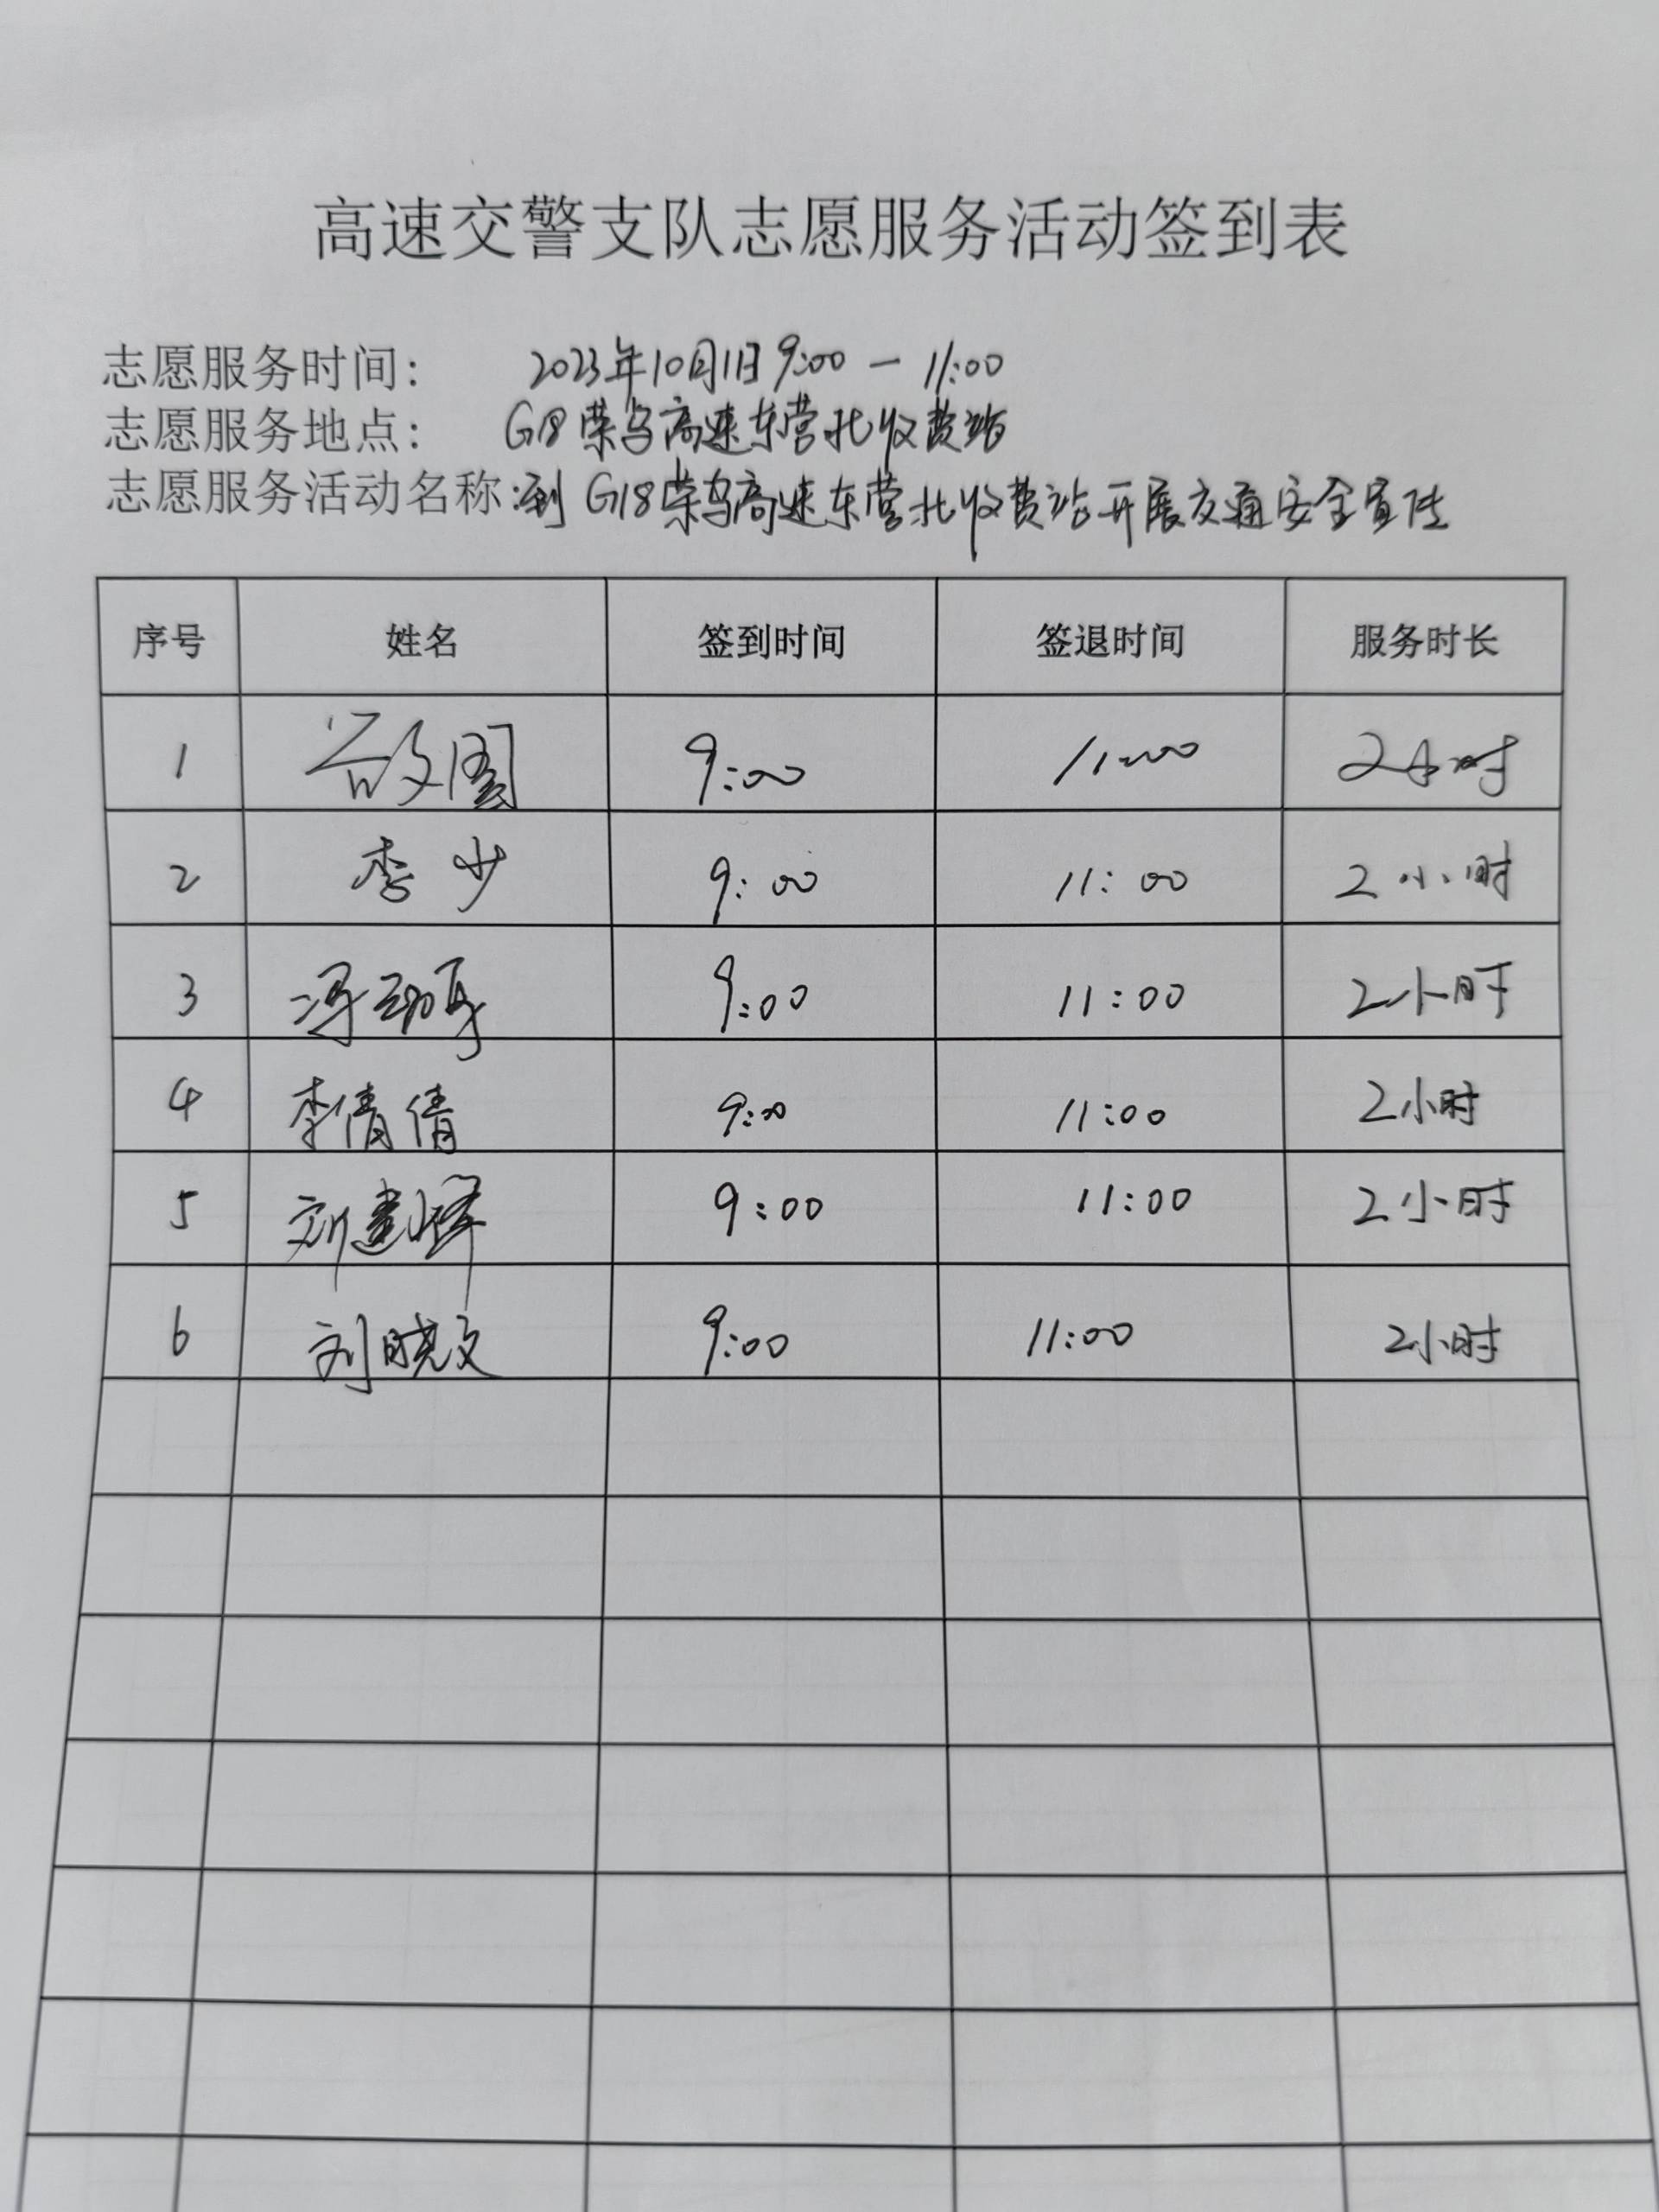 高速交警支队志愿服务活动签到表
志愿服务时间: 2023年10月1日 9:00 — 11:00
志愿服务地点: G18荣乌高速东营北收费站
志愿服务活动名称:到G18荣乌高速东营北收费站开展交通安全宣传
序号 姓名 签到时间 签退时间 服务时长
1 9:00 11:00 2小时
2 李少 9:00 11:00 2小时
3 冯 9:00 11:00 2小时
4 李倩倩 9:00 11:00 2小时
5 刘建峰 9:00 11:00 2小时
6 刘晓文 9:00 11:00 2小时